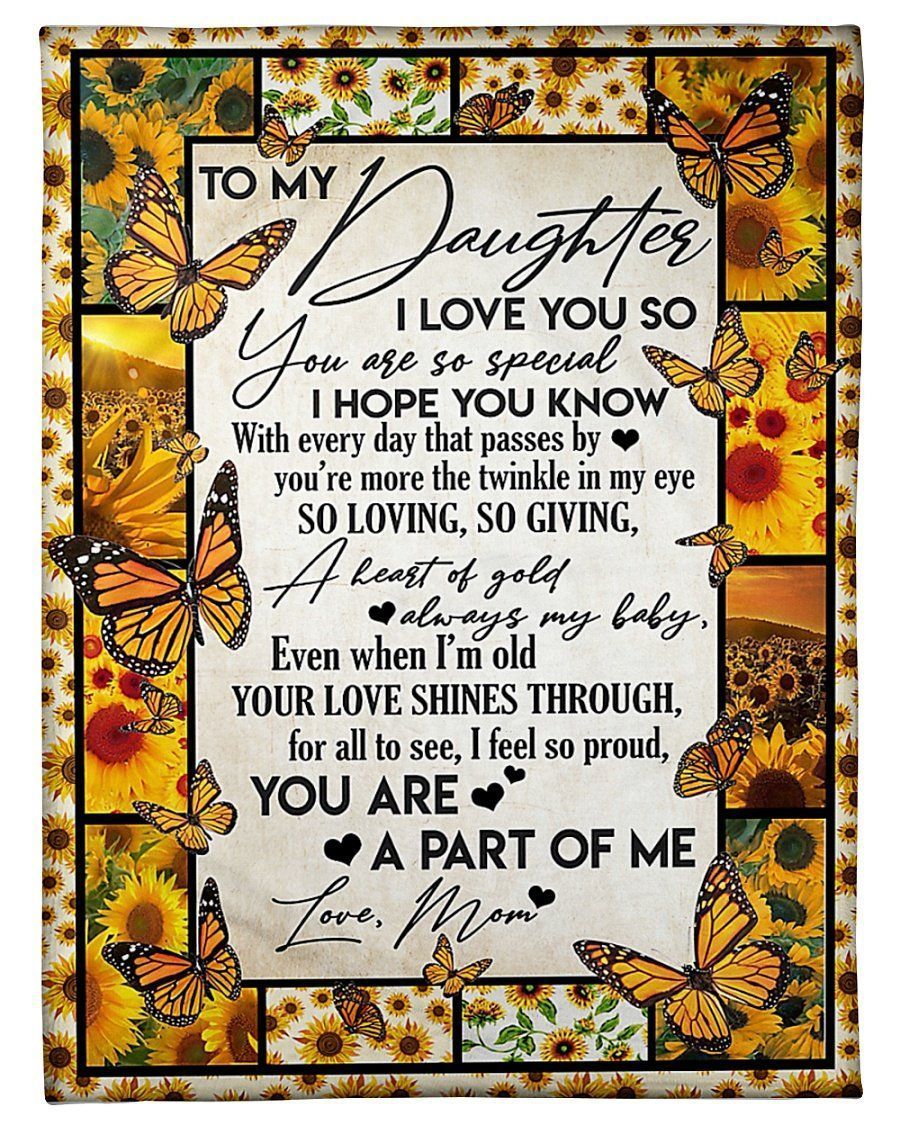 TO MY Daughter
I LOVE YOU SO
You are so special
I HOPE YOU KNOW
With every day that passes by
you're more the twinkle in my eye
SO LOVING, SO GIVING,
A heart of gold
always my baby,
Even when I'm old
YOUR LOVE SHINES THROUGH,
for all to see, I feel so proud,
YOU ARE
A PART OF ME
Love, Mom